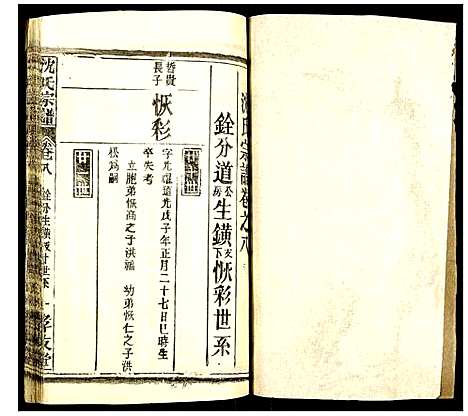 沈氏宗譜卷之八
銓分道公房生鐄支下恢彩世系
哲貴長子
恢彩
字光耀道光戊子年正月二十七日巳時生
卒失考
立胞弟恢高之子洪福 幼弟恢仁之子洪
松爲嗣
沈氏宗譜
卷之八
銓分生鐄
廿世系
一
孝友堂